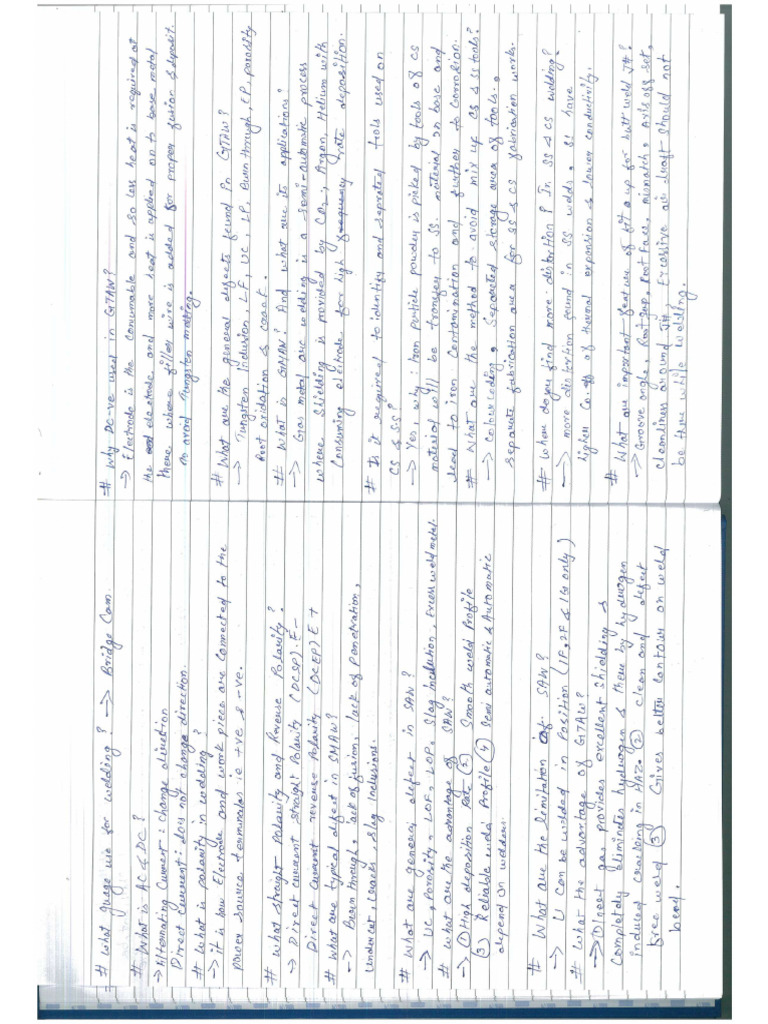 # What guage use for welding? → Bridge Cam.
# What is AC & DC?
→ Alternating Current: change direction
Direct Current: does not change direction.
# What is polarity in welding?
→ it is how Electrode and work piece are connected to the
power source terminales ie +ve & -ve.
# What straight Polarity and Reverse Polarity?
→ Direct current straight Polarity (DCSP). E-
Direct current reverse Polarity (DCEP) E+
# What are typical defect in SMAW?
→ Burn through, lack of fusion, lack of penetration,
undercut, cracks, slag inclusions.
# What are general defect in SAW?
→ UC, Porosity, LOF, LOP, Slag inclution, Excess weld metal.
# What are the advantage of SAW?
→ ① High deposition Rate ② Smooth weld Profile
③ Reliable weld Profile ④ Semi automatic & Automatic
depend on welders.
# What are the Limitation of SAW?
→ U Can be welded in Position (1F, 2F & 1G only)
# What the advantage of GTAW?
→ ① Inert gas, provides excellent shielding &
Completely eliminates hydrogen & there by hydrogen
induced cracking in HAZ. ② clean and defect
free weld ③ Gives better contour on weld
bead.
# Why DC-ve used in GTAW?
→ Electrode is the consumable and so less heat is required at
the electrode and more heat is applied on to base metal
there where filler wire is added for proper fusion & deposit.
to avoid Tungsten melting.
# What are the general defects found in GTAW?
→ Tungsten Inclusion, LF, UC, LP, Burn through, EP, porosity
Root oxidation &
# What is GMAW? And what are its applications?
→ Gas metal arc welding is a semi-automatic process
where Shielding is provided by CO2, Argon, Helium with
Consuming electrode, for high frequency rate deposition.
# Is it required to identity and seprated tools used on
CS & SS?
→ Yes, why: Iron particle powder is picked by tools of CS
material will be transfer to SS. material on base and
lead to iron Contamination and further to Corrosion.
# What are the method to avoid mix up CS & SS tools?
→ Colour coding, Separated storage area of tools,
separate fabrication area for SS & CS fabrication works.
# Where do you find more distortion? In SS & CS welding?
→ more distortion found in SS welds, SS have
higher Co eff of thermal expansion & lower conductivity.
# What are important feature of fit up for butt weld Jt?
→ Groove angle, Root gap, Root Face, mismatch, Axis off set,
cleanliness around Jt, Excessive air draft should not
be there while welding.